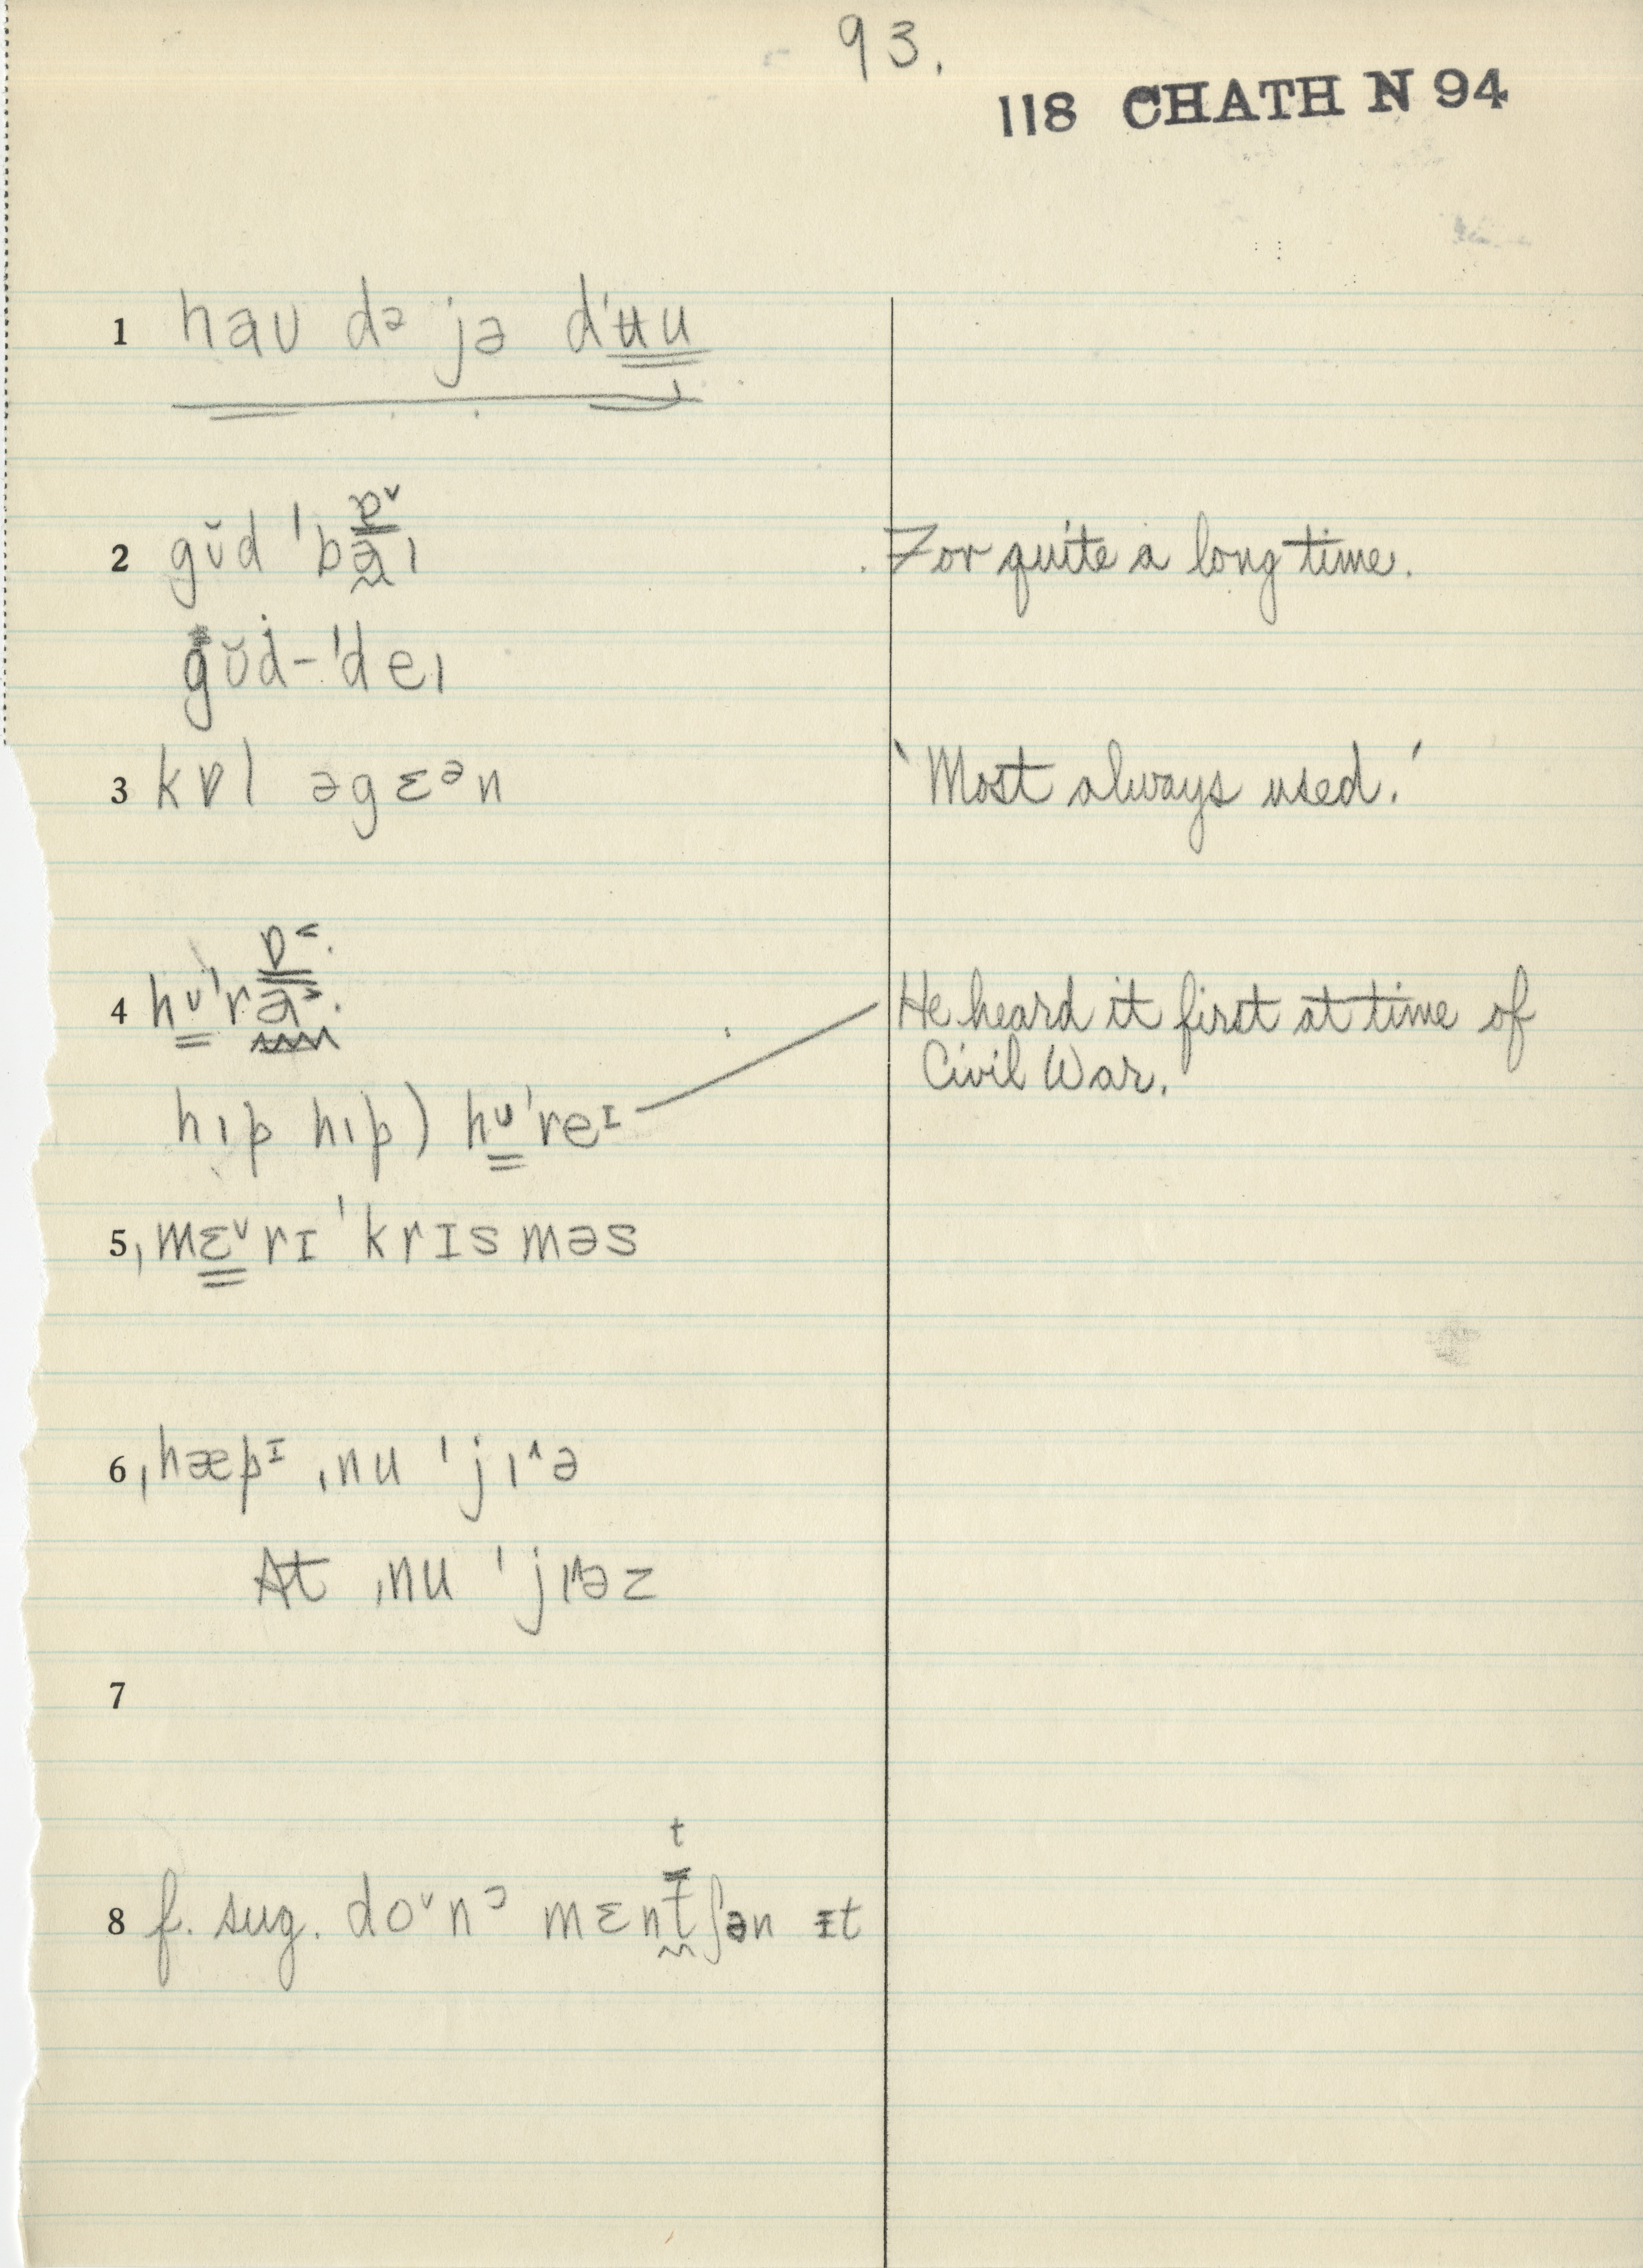 93.
118 CHATH N 94
1 haʊ dᵊ jə dˈʉu
2 gʊ̆d ˈbaɪ For quite a long time.
ɒ˅
gʊ̆d-ˈdeɪ
3 kɒl əgɛᵊn 'Most always used.'
ɒ˂·
4 hᴜˈra˃· He heard it first at time of
Civil War.
hɪp hɪp) hᴜˈreᴵ
5 ˌmɛ˅rɪ ˈkrɪsməs
6 ˌhæpᴵ ˌnu ˈjɪ˄ə
At ˌnu ˈjɪ˄əz
7
t
8 f. sug. do˅nᵓ mɛntʃən ɪt